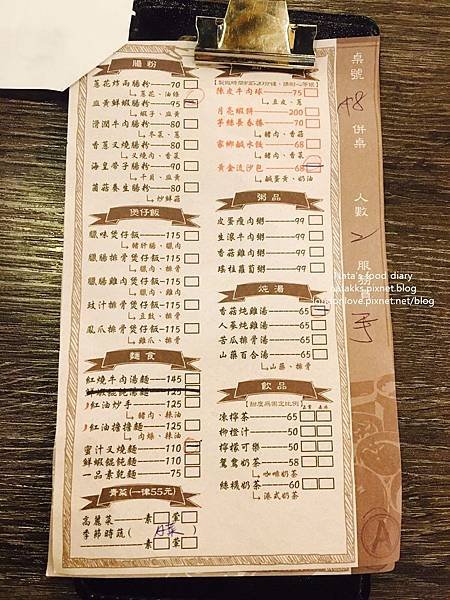 腸粉
蔥花炸兩腸粉—70
蔥花、油條
韭黃鮮蝦腸粉—95
蝦子、韭黃
滑潤牛肉腸粉—80
冬菜、蔥
香蔥叉燒腸粉—80
叉燒肉、香菜
海皇帶子腸粉—90
干貝、韭黃
菌菇養生腸粉—80
炒鮮菇
煲仔飯
臘味煲仔飯—115
豬肝腸、臘肉
臘腸排骨煲仔飯—115
臘腸、排骨
臘腸雞肉煲仔飯—115
臘腸、雞肉
豉汁排骨煲仔飯—115
豆豉、排骨
鳳爪排骨煲仔飯—115
雞爪、排骨
麵食
紅燒牛肉湯麵—145
鮮蝦餛飩湯麵—125
紅油炒手—125
豬肉、辣油
紅油擔擔麵—125
肉燥、辣油
蜜汁叉燒麵—110
鮮蝦餛飩麵—110
一品素乾麵—75
青菜(一律55元)
高麗菜—素 葷
季節時蔬( )
素 葷
陳皮牛肉球—75
豆皮、蔥
月亮蝦餅—200
芋絲長春捲—70
豬肉、香菇
家鄉鹹水餃—68
豬肉、香菜
黃金流沙包—68
鹹蛋黃、奶油
粥品
皮蛋瘦肉粥—99
生滾牛肉粥—99
香菇雞肉粥—99
瑤柱蘿蔔粥—99
炖湯
香菇炖雞湯—65
人蔘炖雞湯—65
苦瓜排骨湯—65
山藥百合湯—65
山藥、排骨
飲品
【甜度為固定比例】
凍檸茶—65
柳橙汁—50
檸檬可樂—50
鴛鴦奶茶—58
咖啡奶茶
絲襪奶茶—60
港式奶茶
桌號 A8 併桌 人數 2 服務
A
Nata's food diary
natakks.pixnet.blog
londonlove.pixnet.net/blog